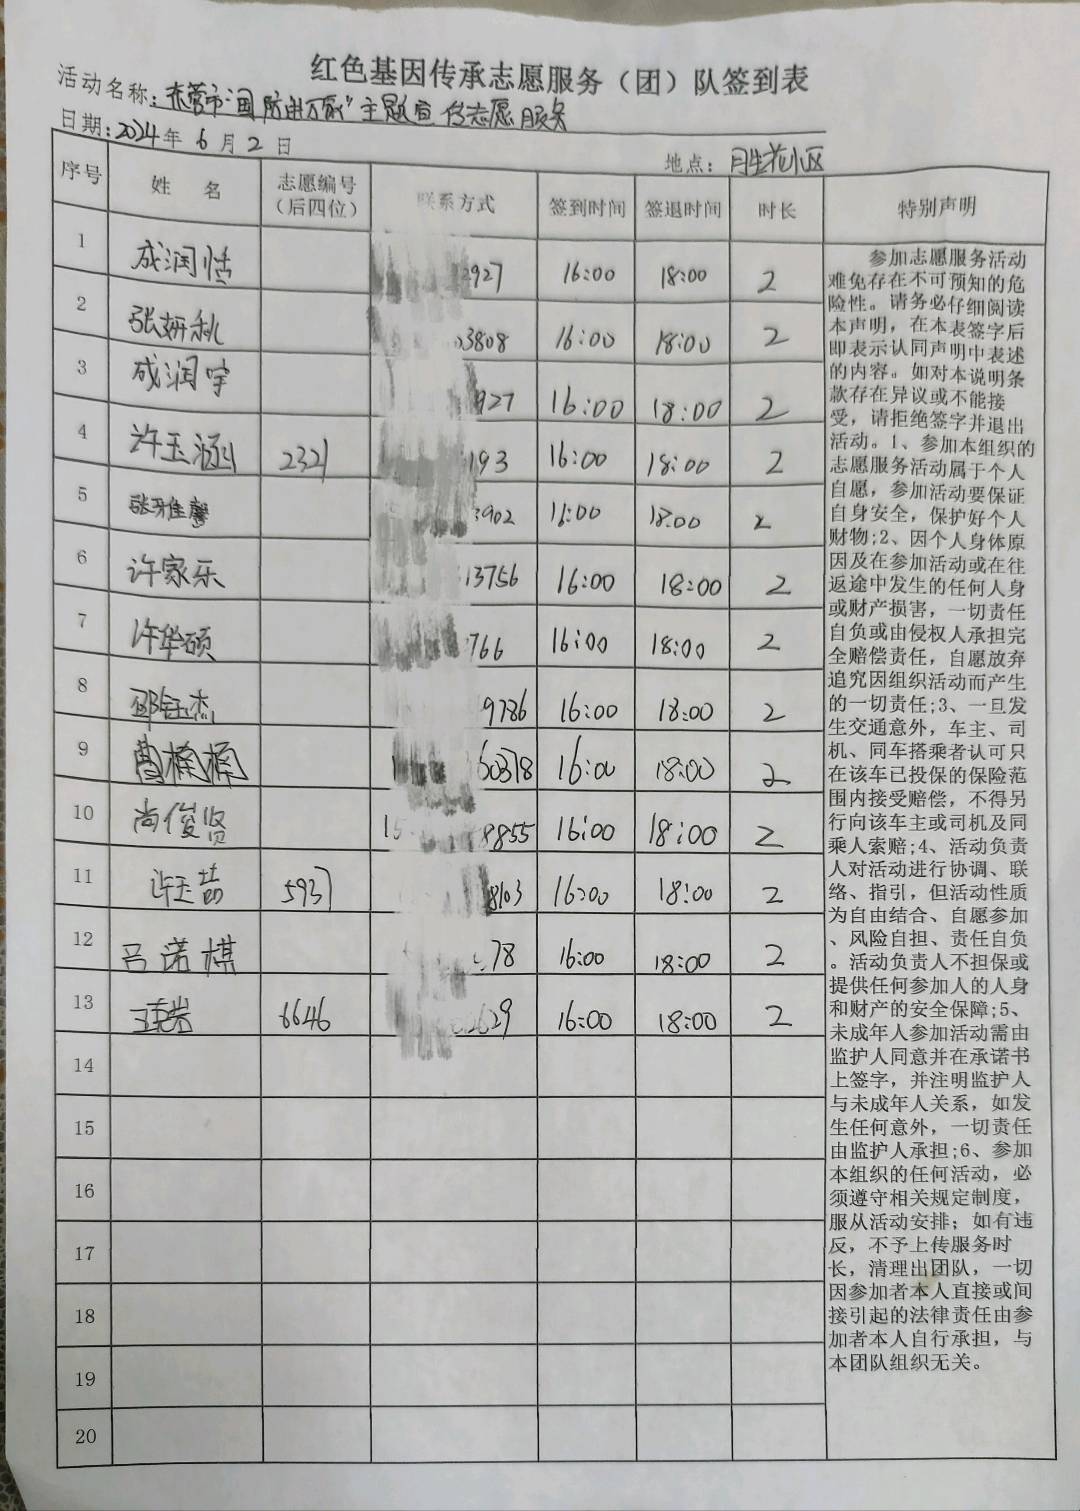 红色基因传承志愿服务（团）队签到表
活动名称：东营市"国防进万家"主题宣传志愿服务
日期：2024年6月2日
地点：月生花小区
序号 姓名 志愿编号（后四位） 联系方式 签到时间 签退时间 时长 特别声明
1 成润恬 2927 16:00 18:00 2
2 张妍秋 03808 16:00 18:00 2
3 成润宇 927 16:00 18:00 2
4 许玉涵 2321 193 16:00 18:00 2
5 张雅馨 3902 16:00 18:00 2
6 许家乐 13756 16:00 18:00 2
7 许华硕 766 16:00 18:00 2
8 邵钰杰 9786 16:00 18:00 2
9 曹楠楠 1 60378 16:00 18:00 2
10 尚俊贤 15 8855 16:00 18:00 2
11 许玉喆 5937 8103 16:00 18:00 2
12 吕诺棋 78 16:00 18:00 2
13 6646 2629 16:00 18:00 2
14
15
16
17
18
19
20
参加志愿服务活动
难免存在不可预知的危
险性。请务必仔细阅读
本声明，在本表签字后
即表示认同声明中表述
的内容。如对本说明条
款存在异议或不能接
受，请拒绝签字并退出
活动。1、参加本组织的
志愿服务活动属于个人
自愿，参加活动要保证
自身安全，保护好个人
财物;2、因个人身体原
因及在参加活动或在往
返途中发生的任何人身
或财产损害，一切责任
自负或由侵权人承担完
全赔偿责任，自愿放弃
追究因组织活动而产生
的一切责任;3、一旦发
生交通意外，车主、司
机、同车搭乘者认可只
在该车已投保的保险范
围内接受赔偿，不得另
行向该车主或司机及同
乘人索赔;4、活动负责
人对活动进行协调、联
络、指引，但活动性质
为自由结合、自愿参加
、风险自担、责任自负
。活动负责人不担保或
提供任何参加人的人身
和财产的安全保障;5、
未成年人参加活动需由
监护人同意并在承诺书
上签字，并注明监护人
与未成年人关系，如发
生任何意外，一切责任
由监护人承担;6、参加
本组织的任何活动，必
须遵守相关规定制度，
服从活动安排；如有违
反，不予上传服务时
长，清理出团队，一切
因参加者本人直接或间
接引起的法律责任由参
加者本人自行承担，与
本团队组织无关。